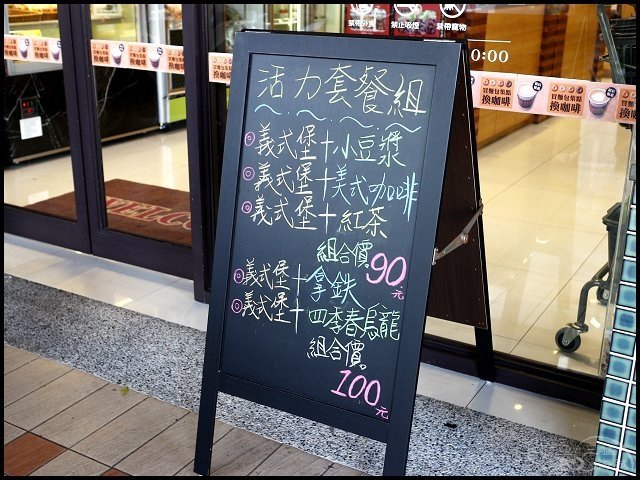 禁帶外食
禁止吸煙
禁帶寵物
0:00
買麵包集點
換咖啡
買麵包集點
換咖啡
買麵包集點
換咖啡
活力套餐組
義式堡+小豆漿
義式堡+美式咖啡
義式堡+紅茶
組合價90元
義式堡+拿鉄
義式堡+四季春烏龍
組合價100元
WELCO